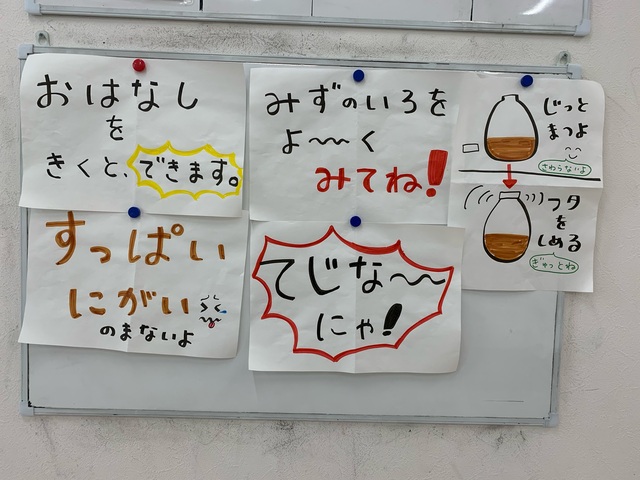 おはなし
を
きくと、できます。
すっぱい
にがい
のまないよ
みずのいろを
よ〜〜く
みてね!
てじな〜〜
にゃ!
じっと
まつよ
さわらないよ
フタ
を
しめる
ぎゅっとね